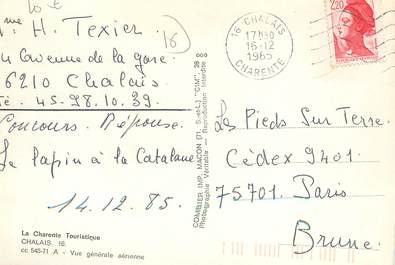 me H. Texier
(16)
24 avenue de la gare
16210 Chalais
Té. 45-98.10.39.
Concours. Réponse.
Le lapin à la Catalane
14.12.85.
La Charente Touristique
CHALAIS. 16.
cc 545-71 A - Vue générale aérienne
COMBIER IMP. MACON (71, S.-et-L.) "CIM". 28 000
Photographie Véritable — Reproduction Interdite
16 CHALAIS
17H30
16-12
1985
CHARENTE
2,20
Les Pieds Sur Terre.
Cédex 9401.
75701. Paris
Brune.